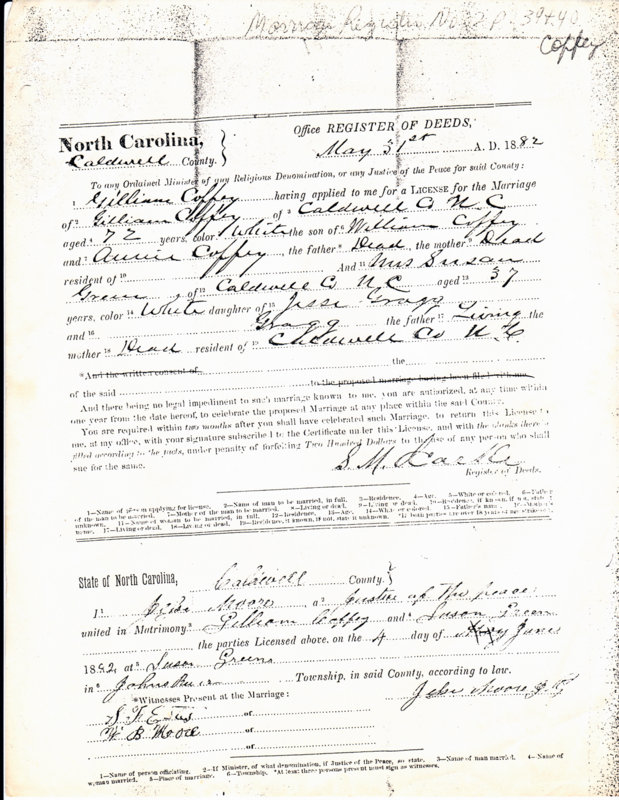 Marriage Register No. 2 p. 39 + 40
Coffey
North Carolina,
Caldwell County.
Office REGISTER OF DEEDS,
May 31st A. D. 1882
To any Ordained Minister of any Religious Denomination, or any Justice of the Peace for said County:
1 Gilliam Coffey having applied to me for a LICENSE for the Marriage
of 2 Gilliam Coffey of 3 Caldwell Co N C
aged 4 72 years, color 5 White the son of 6 William Coffey
and 7 Annie Coffey, the father 8 Dead, the mother 9 Dead
resident of 10 And 11 Mrs Susan
Green of 12 Caldwell Co N C aged 13 37
years, color 14 White daughter of 15 Jesse Gragg
and 16 Gragg the father 17 Living the
mother 18 Dead resident of 19 Caldwell Co N C
*And the written consent of the
of the said to the proposed marriage having been filed with me
And there being no legal impediment to such marriage known to me, you are authorized, at any time within
one year from the date hereof, to celebrate the proposed Marriage at any place within the said County.
You are required within two months after you shall have celebrated such Marriage, to return this License to
me, at my office, with your signature subscribed to the Certificate under this License, and with the blanks therein
filled according to the facts, under penalty of forfeiting Two Hundred Dollars to the use of any person who shall
sue for the same.
S. M.
Register of Deeds.
1—Name of person applying for license. 2—Name of man to be married, in full. 3—Residence. 4—Age. 5—White or colored. 6—Father
of the man to be married. 7—Mother of the man to be married. 8—Living or dead. 9—Living or dead. 10—Residence, if known, if not, state
unknown. 11—Name of woman to be married, in full. 12—Residence. 13—Age. 14—White or colored. 15—Father's name. 16—Mother's
name. 17—Living or dead. 18—Living or dead. 19—Residence, if known, if not, state it unknown. *If both parties are over 18 years of age
State of North Carolina, Caldwell County.
I 1 John Moore a 2 Justice of the peace
united in Matrimony 3 Gilliam Coffey and 4 Susan Green
the parties Licensed above, on the 4 day of May June
1882, at 5 Susan Greens
in 6 Johns River Township, in said County, according to law.
*Witnesses Present at the Marriage:
John Moore J. P.
S. F. Estes of
W B Moore of
of
1—Name of person officiating. 2—If Minister, of what denomination, if Justice of the Peace, so state. 3—Name of man married. 4—Name of
woman married. 5—Place of marriage. 6—Township. *At least three persons present must sign as witnesses.